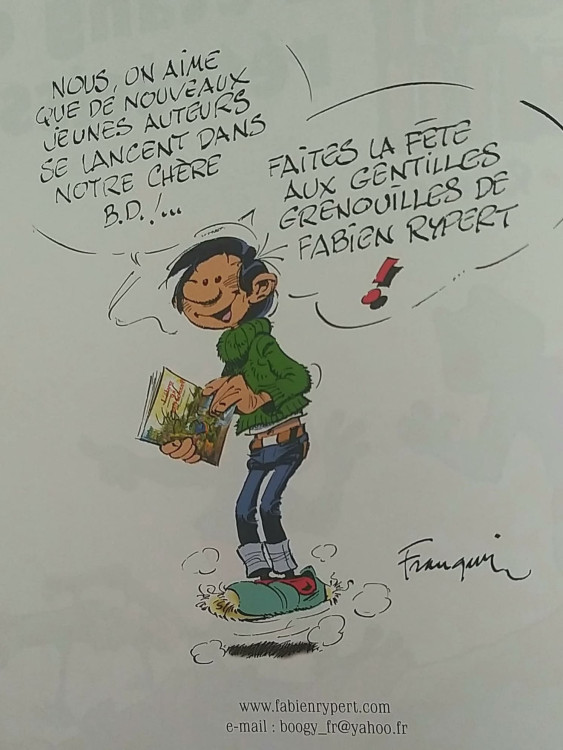 NOUS, ON AIME
QUE DE NOUVEAUX
JEUNES AUTEURS
SE LANCENT DANS
NOTRE CHÈRE
B.D. !...
FAITES LA FÊTE
AUX GENTILLES
GRENOUILLES DE
FABIEN RYPERT
!
Franquin
www.fabienrypert.com
e-mail : boogy_fr@yahoo.fr